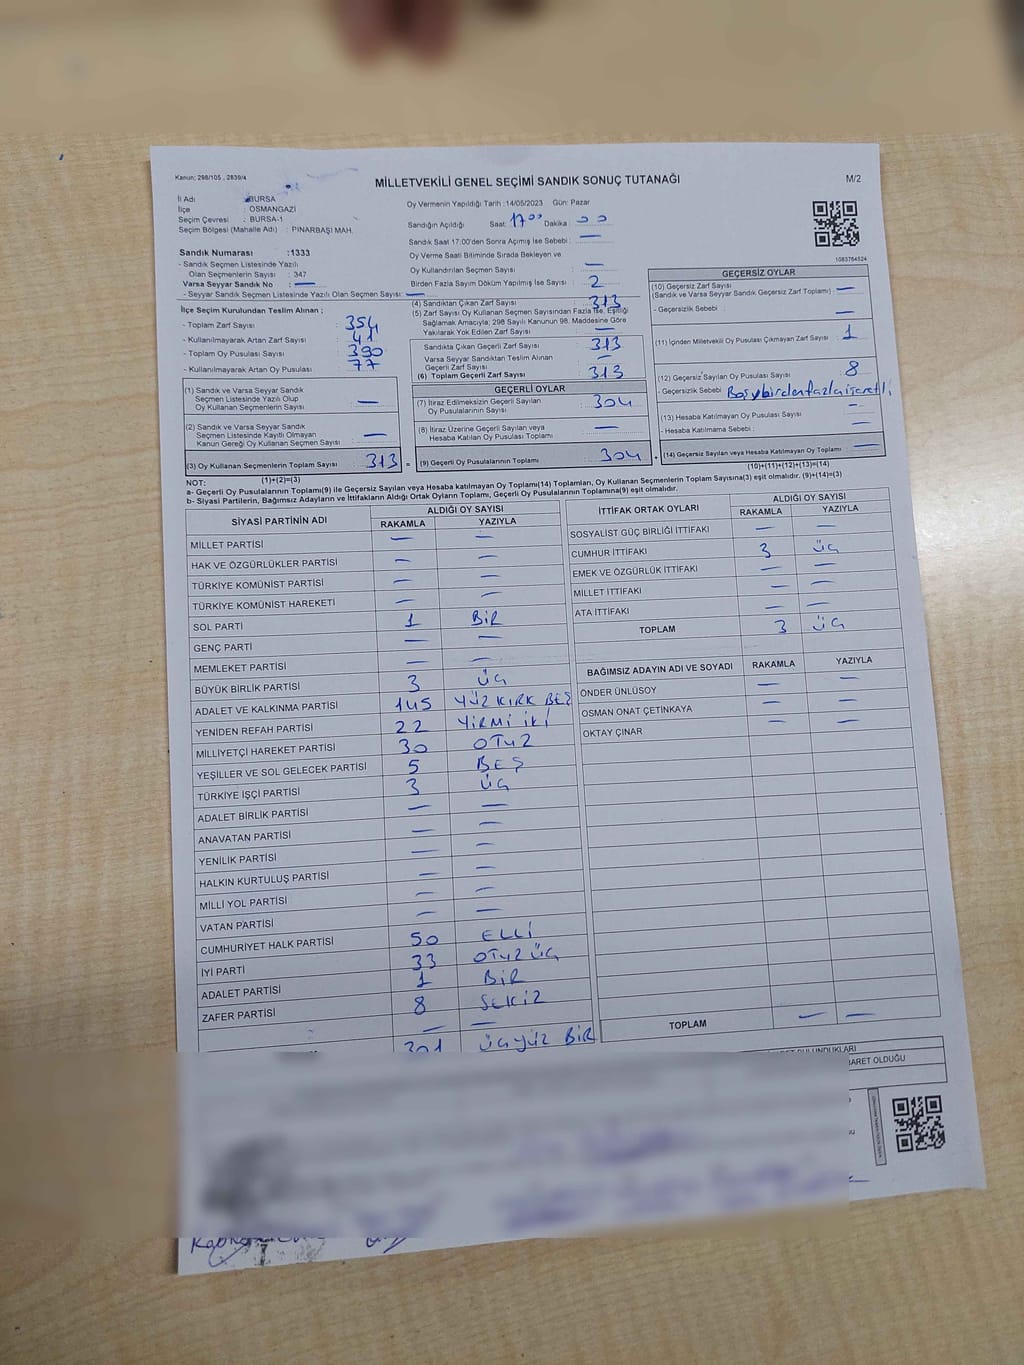 Kanun; 298/105 , 2839/4
MİLLETVEKİLİ GENEL SEÇİMİ SANDIK SONUÇ TUTANAĞI
M/2
İl Adı : BURSA
İlçe : OSMANGAZİ
Seçim Çevresi : BURSA-1
Seçim Bölgesi (Mahalle Adı) : PINARBAŞI MAH.
Sandık Numarası :1333
- Sandık Seçmen Listesinde Yazılı
Olan Seçmenlerin Sayısı : 347
Varsa Seyyar Sandık No : —
- Seyyar Sandık Seçmen Listesinde Yazılı Olan Seçmen Sayısı: —
İlçe Seçim Kurulundan Teslim Alınan ;
- Toplam Zarf Sayısı : 354
- Kullanılmayarak Artan Zarf Sayısı : 41
- Toplam Oy Pusulası Sayısı : 390
- Kullanılmayarak Artan Oy Pusulası : 77
(1) Sandık ve Varsa Seyyar Sandık
Seçmen Listesinde Yazılı Olup
Oy Kullanan Seçmenlerin Sayısı : —
(2) Sandık ve Varsa Seyyar Sandık
Seçmen Listesinde Kayıtlı Olmayan
Kanun Gereği Oy Kullanan Seçmen Sayısı : —
(3) Oy Kullanan Seçmenlerin Toplam Sayısı : 313 =
(1)+(2)=(3)
Oy Vermenin Yapıldığı Tarih :14/05/2023 Gün: Pazar
Sandığın Açıldığı Saat: 17⁰⁰ Dakika : 00
Sandık Saat 17:00'den Sonra Açımış İse Sebebi : —
Oy Verme Saati Bitiminde Sırada Bekleyen ve
Oy Kullandırılan Seçmen Sayısı : —
Birden Fazla Sayım Döküm Yapılmış İse Sayısı : 2
(4) Sandıktan Çıkan Zarf Sayısı : 313
(5) Zarf Sayısı Oy Kullanan Seçmen Sayısından Fazla İse, Eşitliği
Sağlamak Amacıyla, 298 Sayılı Kanunun 98. Maddesine Göre
Yakılarak Yok Edilen Zarf Sayısı : —
Sandıkta Çıkan Geçerli Zarf Sayısı : 313
Varsa Seyyar Sandıktan Teslim Alınan
Geçerli Zarf Sayısı : —
(6) Toplam Geçerli Zarf Sayısı : 313
GEÇERLİ OYLAR
(7) İtiraz Edilmeksizin Geçerli Sayılan
Oy Pusulalarının Sayısı : 304
(8) İtiraz Üzerine Geçerli Sayılan veya
Hesaba Katılan Oy Pusulası Toplamı : —
(9) Geçerli Oy Pusulalarının Toplamı : 304 +
1083764524
GEÇERSİZ OYLAR
(10) Geçersiz Zarf Sayısı
(Sandık ve Varsa Seyyar Sandık Geçersiz Zarf Toplamı) : —
- Geçersizlik Sebebi : —
(11) İçinden Milletvekili Oy Pusulası Çıkmayan Zarf Sayısı : 1
(12) Geçersiz Sayılan Oy Pusulası Sayısı : 8
- Geçersizlik Sebebi : Boş, birden fazla işaretli
(13) Hesaba Katılmayan Oy Pusulası Sayısı : —
- Hesaba Katılmama Sebebi : —
(14) Geçersiz Sayılan veya Hesaba Katılmayan Oy Toplamı : —
(10)+(11)+(12)+(13)=(14)
NOT:
a- Geçerli Oy Pusulalarının Toplamı(9) ile Geçersiz Sayılan veya Hesaba katılmayan Oy Toplamı(14) Toplamları, Oy Kullanan Seçmenlerin Toplam Sayısına(3) eşit olmalıdır. (9)+(14)=(3)
b- Siyasi Partilerin, Bağımsız Adayların ve İttifakların Aldığı Ortak Oyların Toplamı, Geçerli Oy Pusulalarının Toplamına(9) eşit olmalıdır.
SİYASİ PARTİNİN ADI ALDIĞI OY SAYISI
RAKAMLA YAZIYLA
MİLLET PARTİSİ — —
HAK VE ÖZGÜRLÜKLER PARTİSİ — —
TÜRKİYE KOMÜNİST PARTİSİ — —
TÜRKİYE KOMÜNİST HAREKETİ — —
SOL PARTİ 1 BİR
GENÇ PARTİ — —
MEMLEKET PARTİSİ — —
BÜYÜK BİRLİK PARTİSİ 3 ÜÇ
ADALET VE KALKINMA PARTİSİ 145 YÜZ KIRK BEŞ
YENİDEN REFAH PARTİSİ 22 YİRMİ İKİ
MİLLİYETÇİ HAREKET PARTİSİ 30 OTUZ
YEŞİLLER VE SOL GELECEK PARTİSİ 5 BEŞ
TÜRKİYE İŞÇİ PARTİSİ 3 ÜÇ
ADALET BİRLİK PARTİSİ — —
ANAVATAN PARTİSİ — —
YENİLİK PARTİSİ — —
HALKIN KURTULUŞ PARTİSİ — —
MİLLİ YOL PARTİSİ — —
VATAN PARTİSİ — —
CUMHURİYET HALK PARTİSİ 50 ELLİ
İYİ PARTİ 33 OTUZ ÜÇ
ADALET PARTİSİ 1 BİR
ZAFER PARTİSİ 8 SEKİZ
— —
301 ÜÇYÜZ BİR
İTTİFAK ORTAK OYLARI ALDIĞI OY SAYISI
RAKAMLA YAZIYLA
SOSYALİST GÜÇ BİRLİĞİ İTTİFAKI — —
CUMHUR İTTİFAKI 3 ÜÇ
EMEK VE ÖZGÜRLÜK İTTİFAKI — —
MİLLET İTTİFAKI — —
ATA İTTİFAKI — —
TOPLAM 3 ÜÇ
BAĞIMSIZ ADAYIN ADI VE SOYADI RAKAMLA YAZIYLA
ÖNDER ÜNLÜSOY — —
OSMAN ONAT ÇETİNKAYA — —
OKTAY ÇINAR — —
TOPLAM — —
BULUNDUKLARI
BARET OLDUĞU